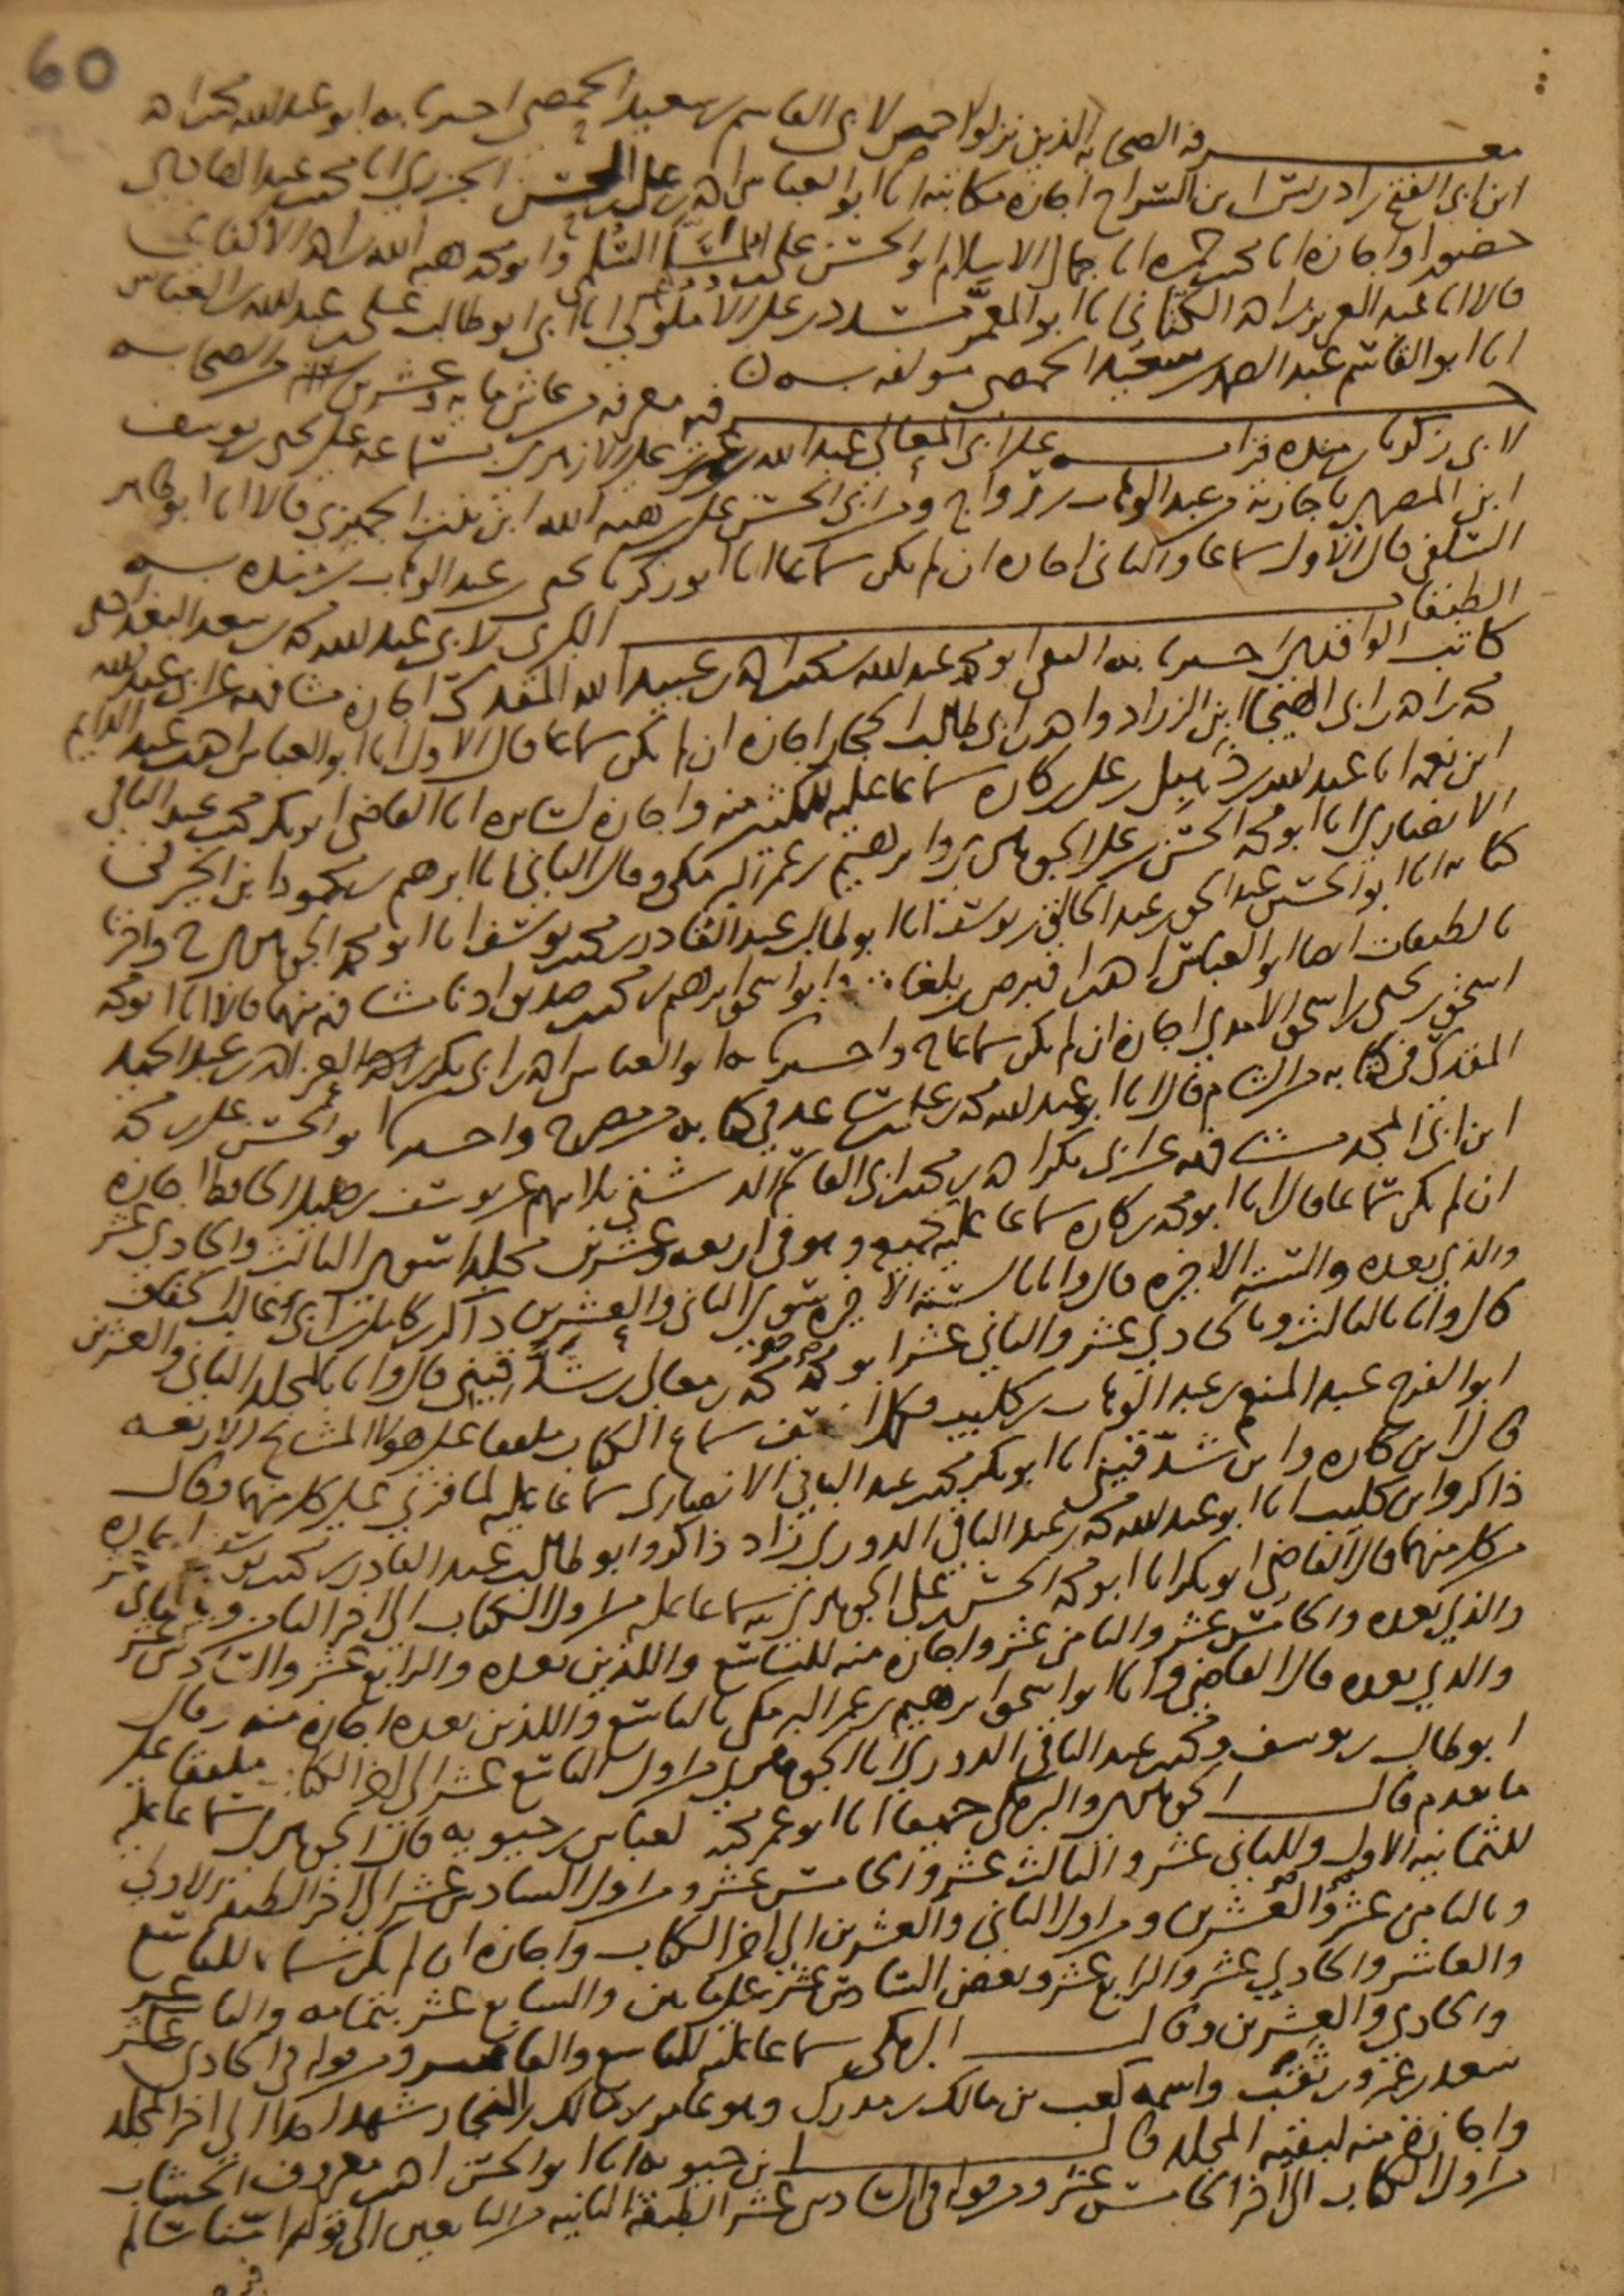 60
معرفة الصحابه الذين نزلوا حمص لابي القاسم بن سعيد الحمصي اخبرنا به ابو عبد الله محمد بن احمد
ابن ابي الفتح بن ادريس ابن السراج اجازة مكاتبة انا ابو العباس احمد بن علي بن الحسن الجزري انا محمد بن عبد الهادي
حضورا واجازة انا محمد بن حمزه انا جمال الاسلام ابو الحسن علي بن المسلم السلمي وابو محمد هبه الله بن احمد الاكفاني
قالا انا عبد العزيز بن احمد الكتاني انا ابو المعمر مسدد بن علي الاملوكي انا ابي ابو طالب علي بن عبد الله بن العباس
انا ابو القاسم عبد الصمد بن سعيد الحمصي مولفه به
فيه معرفة من عاش مايه وعشرين سنة من الصحابه
لابي زكريا بن منده قرات على ابي المعالي عبد الله بن عمر بن علي الازهري بسماعه على يحيى بن يوسف
ابن المصري باجازته من عبد الوهاب بن رواج ومن ابي الحسن علي بن هبه الله ابن بنت الجميزي قالا انا ابو طاهر
السلفي قال الاول سماعا والثاني اجازه ان لم يكن سماعا انا ابو زكريا يحيى بن عبد الوهاب بن منده به
الطبقات الكبرى لابي عبد الله محمد بن سعد البغدادي
كاتب الواقدي اخبرنا به التقي ابو محمد عبد الله بن محمد بن احمد بن عبيد الله المقدسي اجازة مشافهه عن ابي عبد الله
محمد بن احمد بن ابي الهيجا ابن الزراد واحمد بن ابي طالب الحجار اجازة ان لم يكن سماعا قال الاول انا ابو العباس احمد بن عبد الدايم
ابن نعمه انا عبد الله بن دهبل بن علي بن كاره سماعا عليه للكثير منه واجازة لسايره انا القاضي ابو بكر محمد بن عبد الباقي
الانصاري انا ابو محمد الحسن بن علي الجوهري وابراهيم بن عمر البرمكي وقال الثاني انا ابراهيم بن محمود ابن الخير في
كتابه انا ابو الحسين عبد الحق بن عبد الخالق بن يوسف انا ابو طالب عبد القادر بن محمد بن يوسف انا ابو محمد الجوهري ح واخبرنا
بالطبقات ايضا ابو العباس احمد بن اقبرص بلغا وابو اسحق ابراهيم بن محمد بن صديق اذنا مشافهة منهما قالا انا ابو محمد
اسحق بن يحيى بن اسحق الامدي اجازة ان لم يكن سماعا ح واخبرنا به ابو العباس احمد بن ابي بكر بن العز احمد بن عبد الحميد
المقدسي في كتابه من الشام قال انا ابو عبد الله محمد بن علي بن ساعد في كتابه من مصر ح واخبرنا ابو الحسن علي بن محمد
ابن ابي المجد مشافهه عن ابي بكر احمد بن محمد بن ابي القاسم الدشتي ثلاثتهم عن يوسف بن خليل الحافظ اجازه
ان لم يكن سماعا قال انا ابو محمد بن كاره سماعا عليه لجميعه وهو في اربعه وعشرين مجلدا سوى الثالث والحادي عشر
والذي بعده والستة الاخيره قال وانا بالستة الاخيره سوى الثاني والعشرين ذاكر بن كامل بن ابي غالب الخفاف
قال وانا بالثالث وبالحادي عشر والثاني عشر ابو محمد محمد بن معالي بن شدقيني قال وانا بالمجلد الثاني والعشرين
ابو الفرج عبد المنعم بن عبد الوهاب بن كليب سماع الكتاب ملفقا على هولا المشايخ الاربعه
قال ابن كاره وابن شدقيني انا ابو بكر محمد بن عبد الباقي الانصاري سماعا عليه لما قري على كل منهما وقال
ذاكر وابن كليب انا ابو عبد الله محمد بن عبد الباقي الدوري زاد ذاكر وابو طالب عبد القادر بن محمد بن يوسف اجازه
من كل منهما قال القاضي ابو بكر انا ابو محمد الحسن بن علي الجوهري سماعا عليه من اول الكتاب الى اخر الثامن
والذي بعده والخامس عشر والثامن عشر واجازه منه للتاسع واللذين بعده والرابع عشر والسادس عشر
والذي بعده قال القاضي وانا ابو اسحق ابراهيم بن عمر البرمكي بالتاسع واللذين بعده اجازه منه وقال
ابو طالب بن يوسف ومحمد بن عبد الباقي الدوري انا الجوهري من اول التاسع عشر الى اخر الكتاب ملفقا على
ما تقدم قال الجوهري والبرمكي جميعا انا ابو عمر محمد بن العباس بن حيويه قال الجوهري سماعا عليه
للثمانيه الاول وللثاني عشر والثالث عشر والخامس عشر ومن اول السادس عشر الى اخر الطبقه الاولى
وبالثامن عشر والعشرين ومن اول الثاني والعشرين الى اخر الكتاب واجازه ان لم يكن سماعا للتاسع
والعاشر والحادي عشر والرابع عشر وبعض السادس عشر على ما بين والسابع عشر بتمامه والتاسع عشر
والحادي والعشرين وقال البرمكي سماعا عليه للتاسع والعاشر ومن قوله في الحادي عشر
سعد بن عمرو بن ثقف واسمه كعب بن مالك بن مبذول وهو عامر بن مالك بن النجار شهد احدا الى اخر المجلد
واجازة منه لبقيه المجلد قال ابن حيويه انا ابو الحسن احمد بن معروف الخشاب
من اول الكتاب الى اخر الخامس عشر ومن قوله في السادس عشر الطبقه الثانيه من التابعين الى قوله اسنا سالم